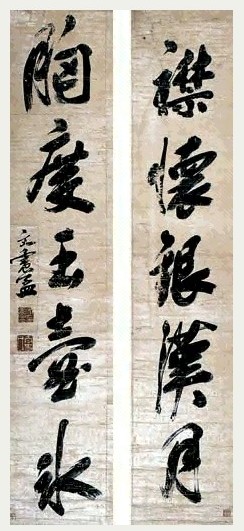 襟懷銀漢月
胸度玉壺冰
文震孟